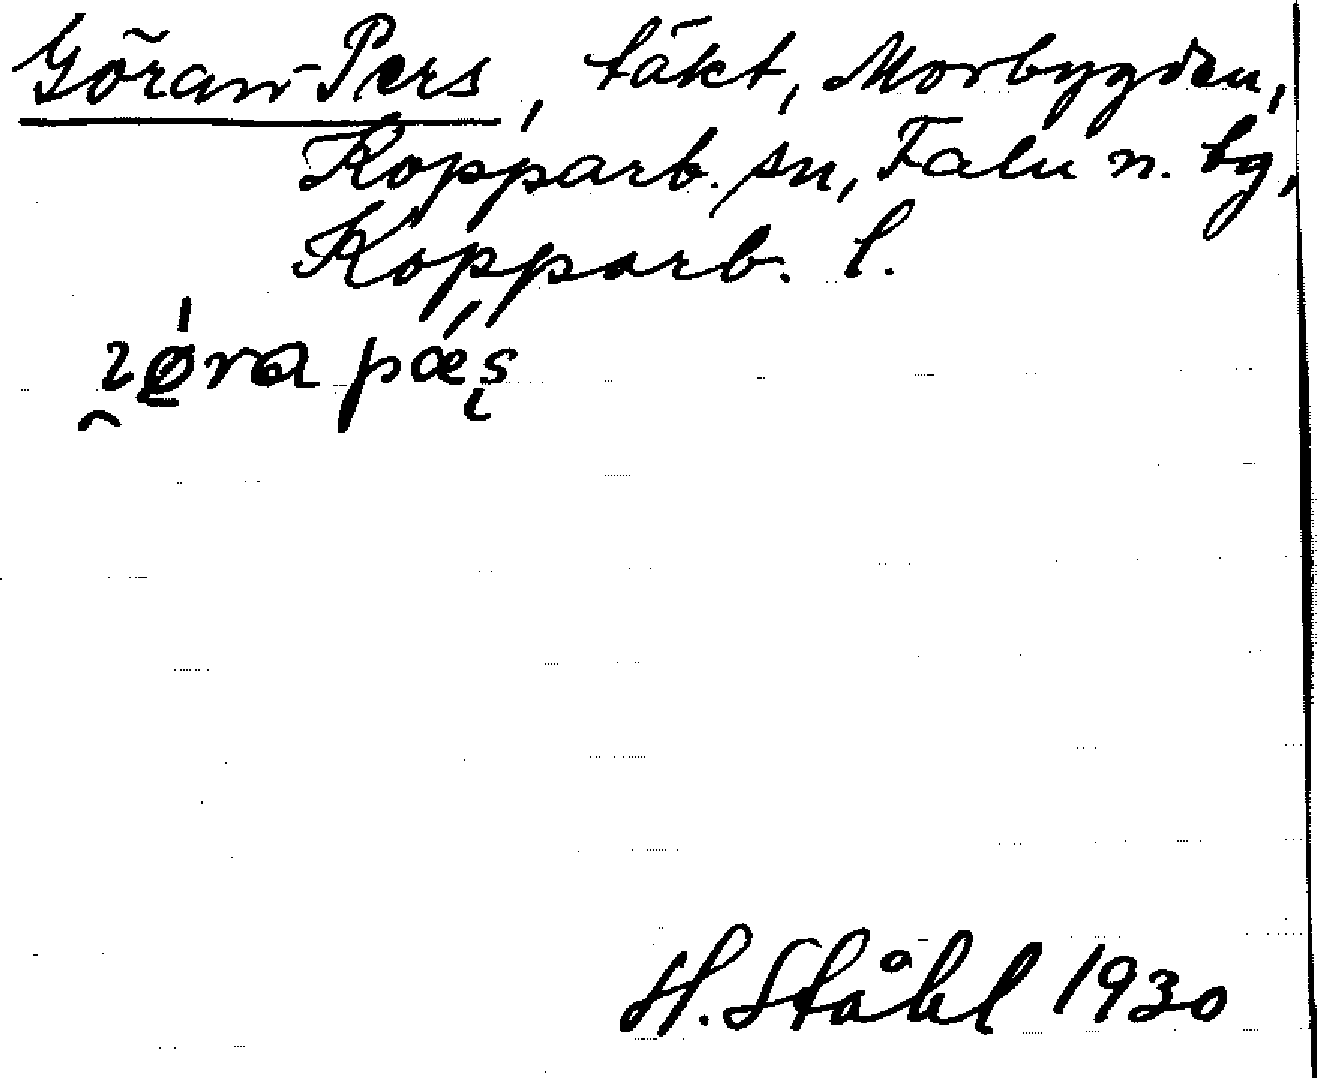 Göran-Pers, täkt, Morbygden,
Kopparb. sn, Falu n. bg,
Kopparb. l.
H. Ståhl 1930